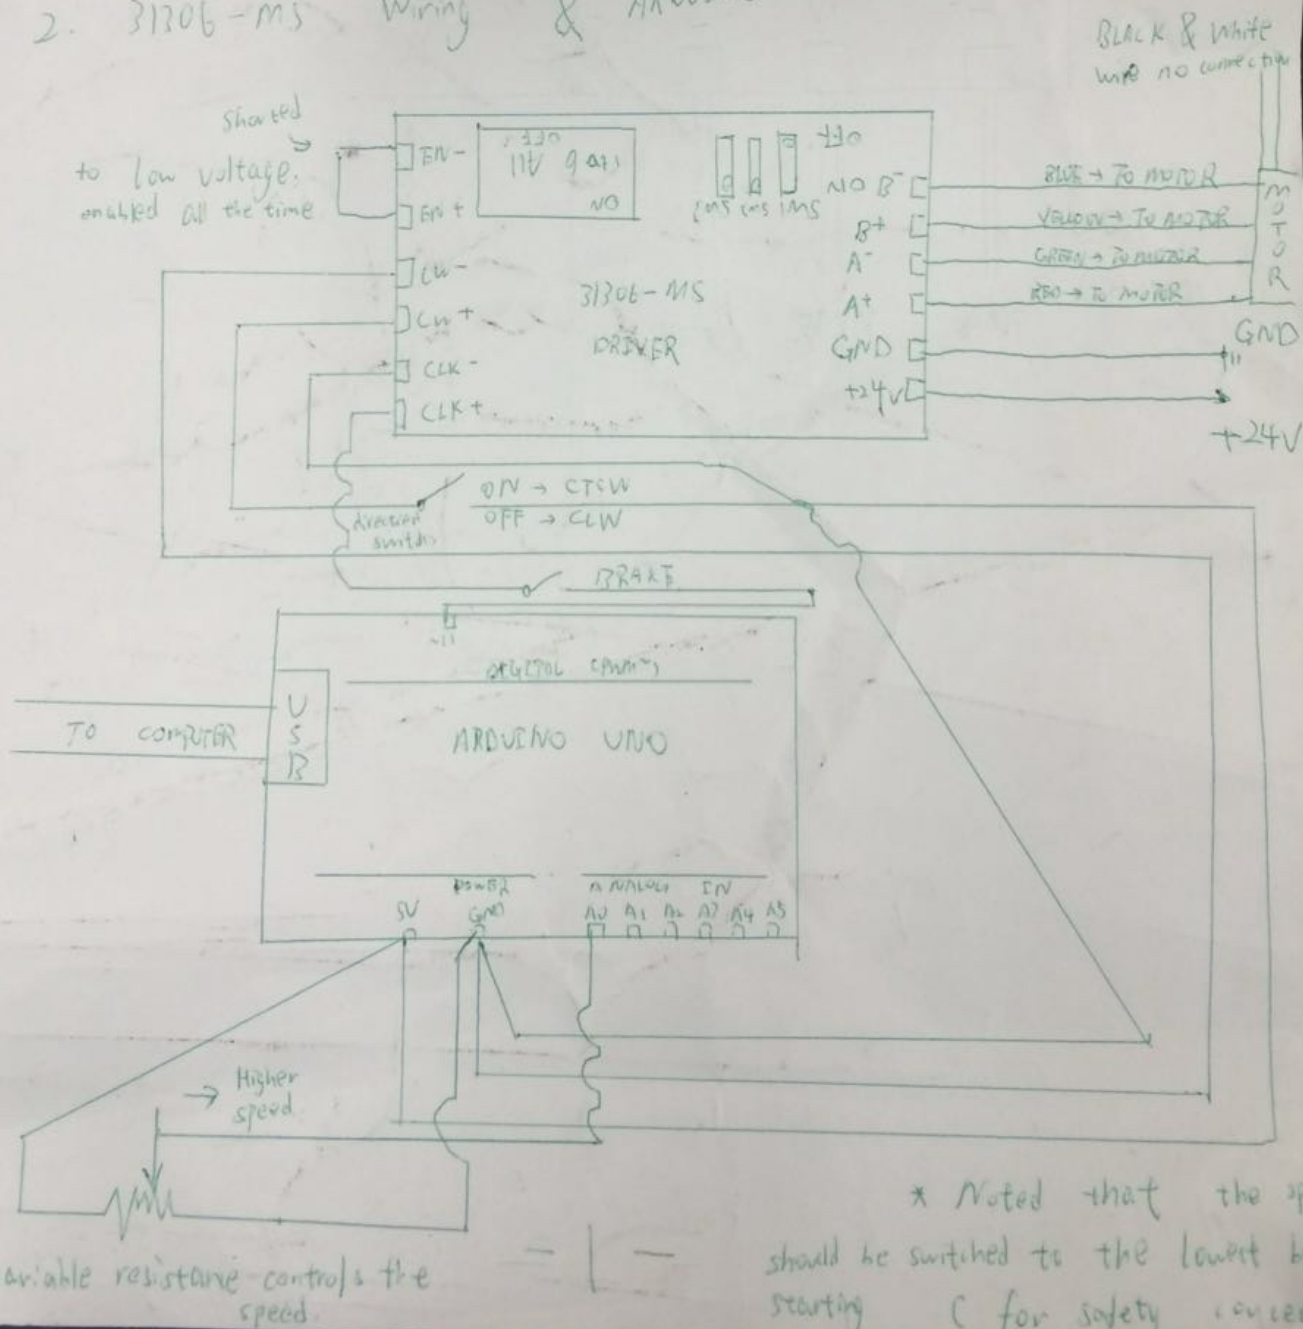 2. 31306-MS Wiring &
BLACK & White
wire no connection
Shorted
to low voltage.
enabled all the time
EN-
EN+
CW-
CW+
CLK-
CLK+
OFF
ON
OFF
NO
B-
B+
A-
A+
GND
+24V
31306-MS
DRIVER
BLUE → TO MOTOR
YELLOW → TO MOTOR
GREEN → TO MOTOR
RED → TO MOTOR
MOTOR
GND
+24V
direction
switch
ON → CTCW
OFF → CLW
BRAKE
~11
DIGITAL (PWM~)
USB
TO COMPUTER
ARDUINO UNO
POWER
ANALOG IN
5V
GND
A0 A1 A2 A3 A4 A5
→ Higher
speed
ariable resistance controls the
speed.
- 1 -
* Noted that the sp
should be switched to the lowest b
starting ( for safety concer